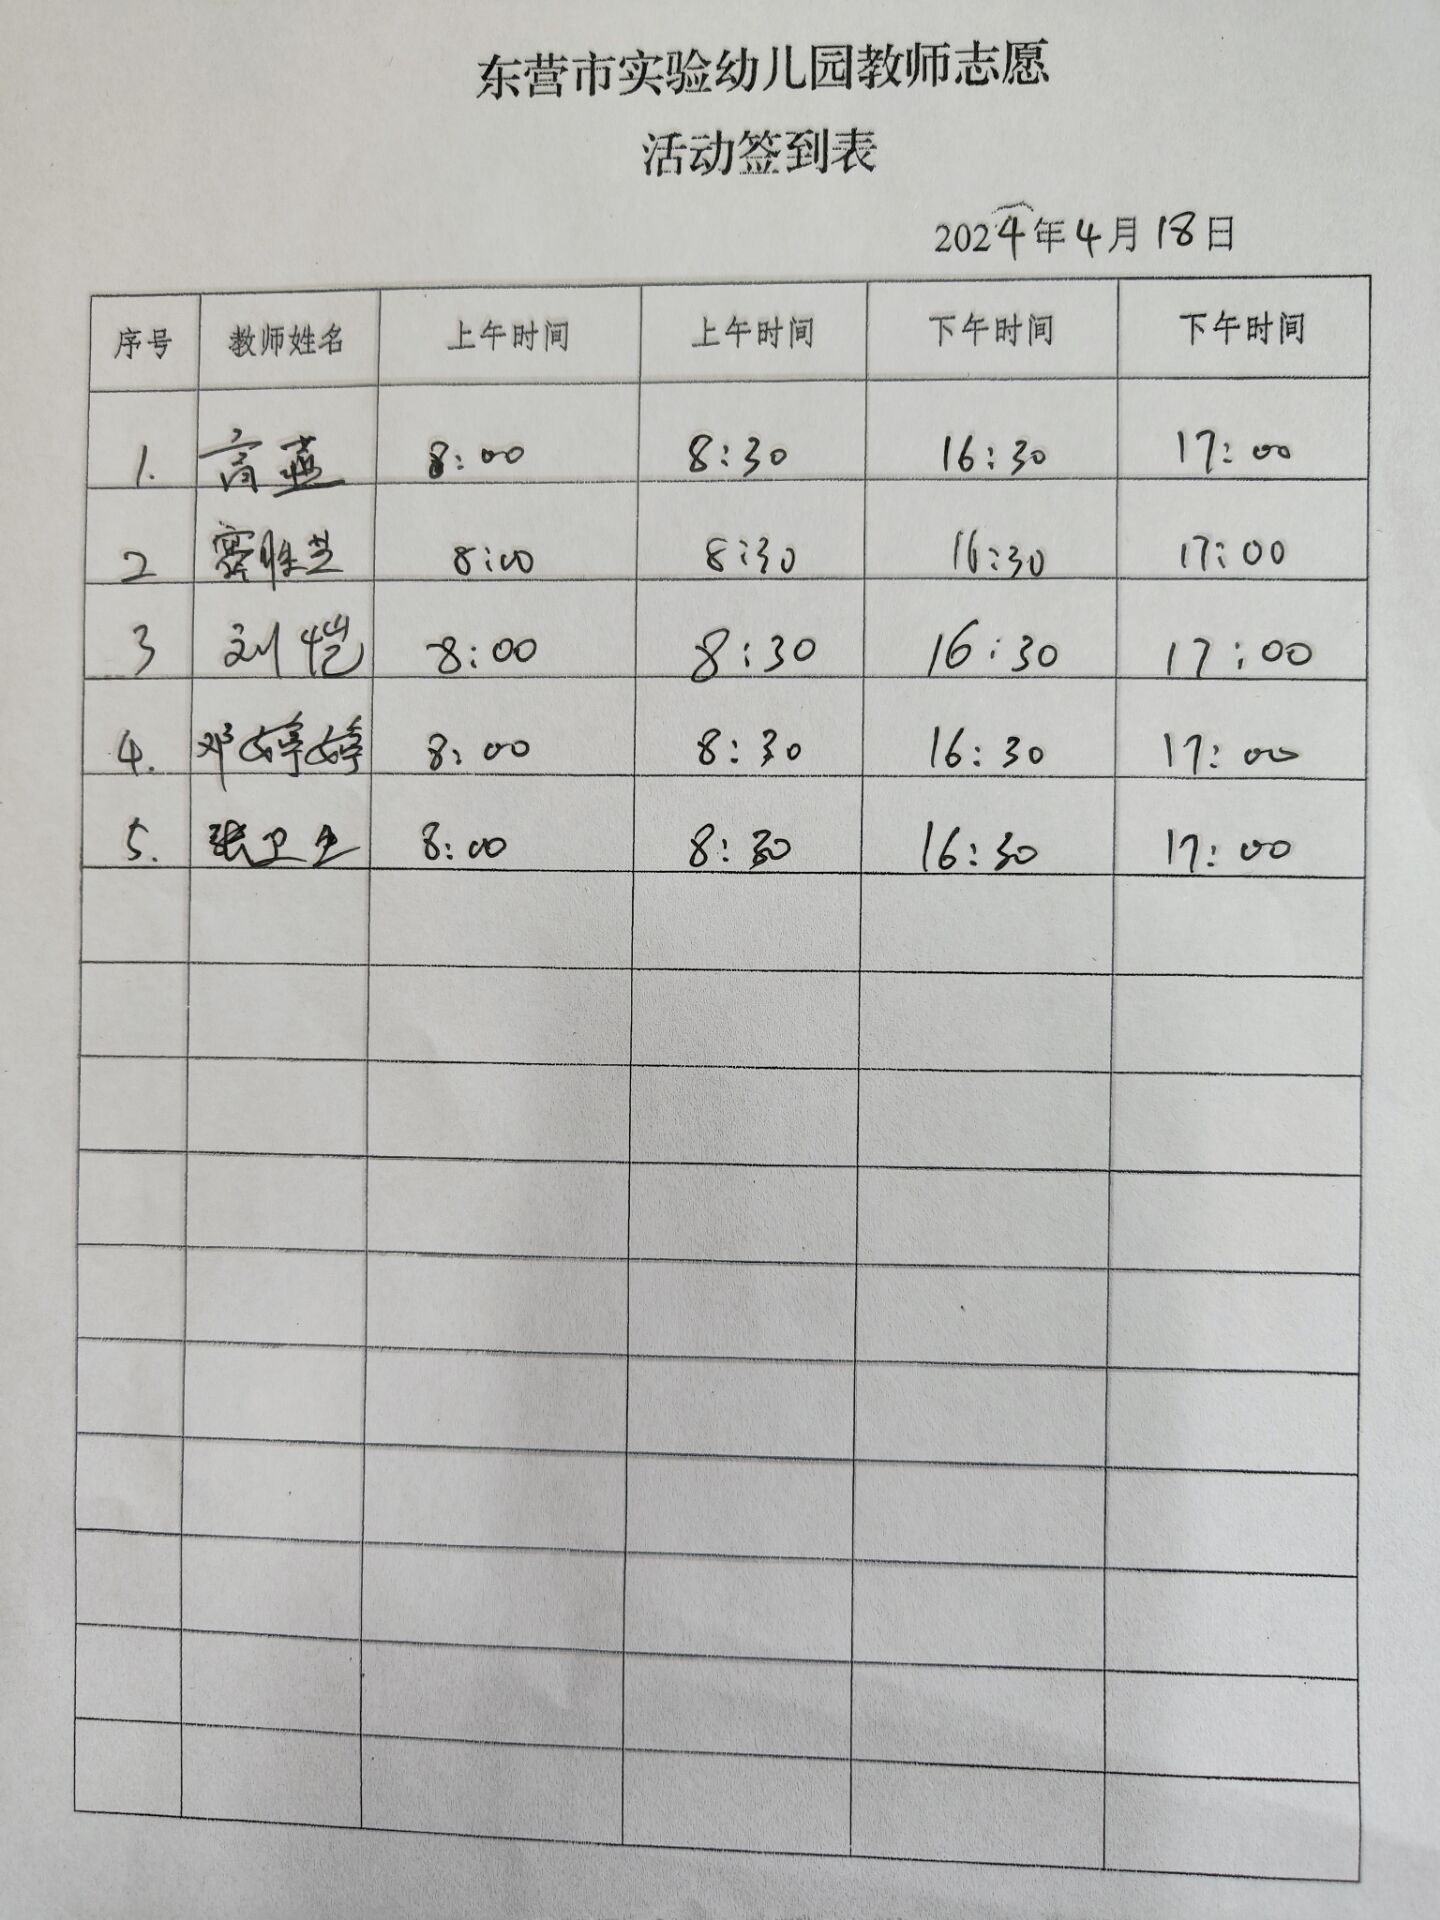 东营市实验幼儿园教师志愿
活动签到表
2024年4月18日
序号 教师姓名 上午时间 上午时间 下午时间 下午时间
1. 高燕 8:00 8:30 16:30 17:00
2 胜兰 8:00 8:30 16:30 17:00
3 刘恺 8:00 8:30 16:30 17:00
4. 邓婷婷 8:00 8:30 16:30 17:00
5. 张卫卫 8:00 8:30 16:30 17:00